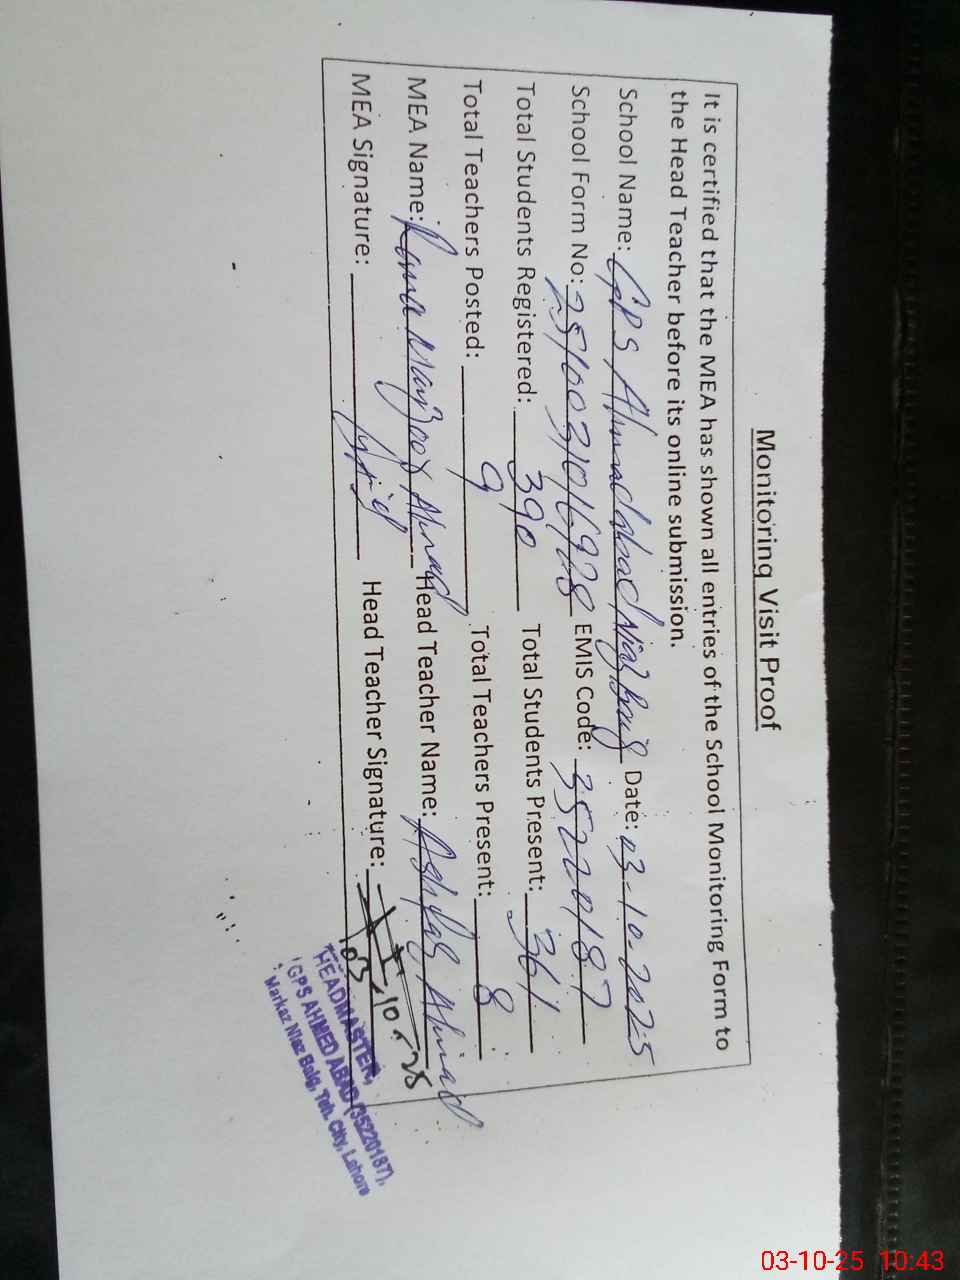 Monitoring Visit Proof
It is certified that the MEA has shown all entries of the School Monitoring Form to
the Head Teacher before its online submission.
School Name: GPS Ahmadabad Niaz Baig Date: 03-10-2025
School Form No: 2510031016928 EMIS Code: 35220187
Total Students Registered: 390 Total Students Present: 361
Total Teachers Posted: 9 Total Teachers Present: 8
MEA Name: Rana Manzoor Ahmad Head Teacher Name: Ashfaq Ahmad
MEA Signature: Head Teacher Signature:
03-10-25
HEADMASTER,
GPS AHMED ABAD (35220187),
Markaz Niaz Baig, Teh. City, Lahore
03-10-25 10:43